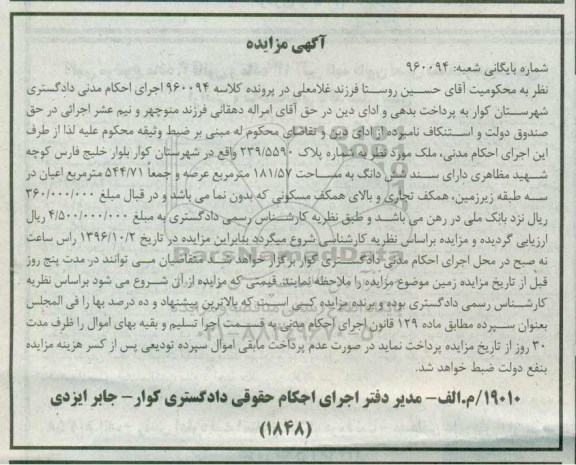 آگهی مزایده
شماره بایگانی شعبه: ۹۶۰۰۹۴
نظر به محکومیت آقای حسین روستا فرزند غلامعلی در پرونده کلاسه ۹۶۰۰۹۴ اجرای احکام مدنی دادگستری
شهرستان کوار به پرداخت بدهی و ادای دین در حق آقای امراله دهقانی فرزند منوچهر و نیم عشر اجرائی در حق
صندوق دولت و استنکاف نامبرده از ادای دین و تقاضای محکوم له مبنی بر ضبط وثیقه محکوم علیه لذا از طرف
این اجرای احکام مدنی، ملک مورد نظر به شماره پلاک ۲۳۹/۵۵۹۰ واقع در شهرستان کوار بلوار خلیج فارس کوچه
شهید مظاهری دارای سند شش دانگ به مساحت ۱۸۱/۵۷ مترمربع عرصه و جمعاً ۵۴۴/۷۱ مترمربع اعیان در
سه طبقه زیرزمین، همکف تجاری و بالای همکف مسکونی که بدون نما می باشد و در قبال مبلغ ۳۶۰/۰۰۰/۰۰۰
ریال نزد بانک ملی در رهن می باشد و طبق نظریه کارشناس رسمی دادگستری به مبلغ ۴/۵۰۰/۰۰۰/۰۰۰ ریال
ارزیابی گردیده و مزایده براساس نظریه کارشناسی شروع میگردد بنابراین مزایده در تاریخ ۱۳۹۶/۱۰/۲ راس ساعت
نه صبح در محل اجرای احکام مدنی دادگستری کوار برگزار خواهد شد. متقاضیان می توانند در مدت پنج روز
قبل از تاریخ مزایده زمین موضوع مزایده را ملاحظه نمایند. قیمتی که مزایده از آن شروع می شود براساس نظریه
کارشناس رسمی دادگستری بوده و برنده مزایده کسی است که بالاترین پیشنهاد و ده درصد بها را فی المجلس
بعنوان سپرده مطابق ماده ۱۲۹ قانون اجرای احکام مدنی به قسمت اجرا تسلیم و بقیه بهای اموال را ظرف مدت
۳۰ روز از تاریخ مزایده پرداخت نماید در صورت عدم پرداخت مابقی اموال سپرده تودیعی پس از کسر هزینه مزایده
بنفع دولت ضبط خواهد شد.
۱۹۰۱۰/م.الف- مدیر دفتر اجرای احکام حقوقی دادگستری کوار- جابر ایزدی
(۱۸۴۸)